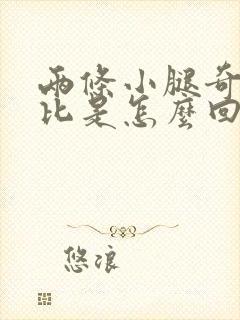 兩條小腿奇
比是怎麼回
悠浪